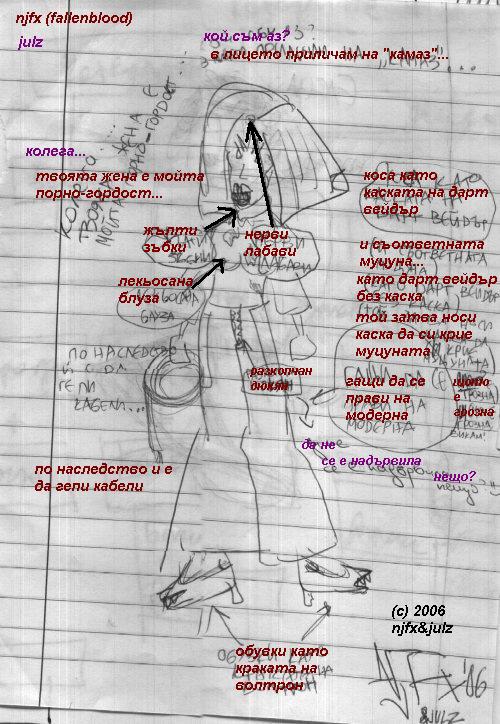 njfx (fallenblood)
julz
кой съм аз?
в лицето приличам на "камаз"...
колега...
твоята жена е мойта
порно-гордост...
коса като
каската на дарт
вейдър
жълти
зъбки
нерви
лабави
и съответната
муцуна...
като дарт вейдър
без каска
той затва носи
каска да си крие
муцуната
лекьосана
блуза
разкопчан
дюкян
гащи да се
прави на
модерна
щото
е
грозна
да не
се е надървила
нещо?
по наследство и е
да гепи кабели
ПО НАСЛЕДСТВО
И Е ДА
ГЕПИ
КАБЕЛИ...
(c) 2006
njfx&julz
обувки като
краката на
волтрон
NJFX '06
&JULZ